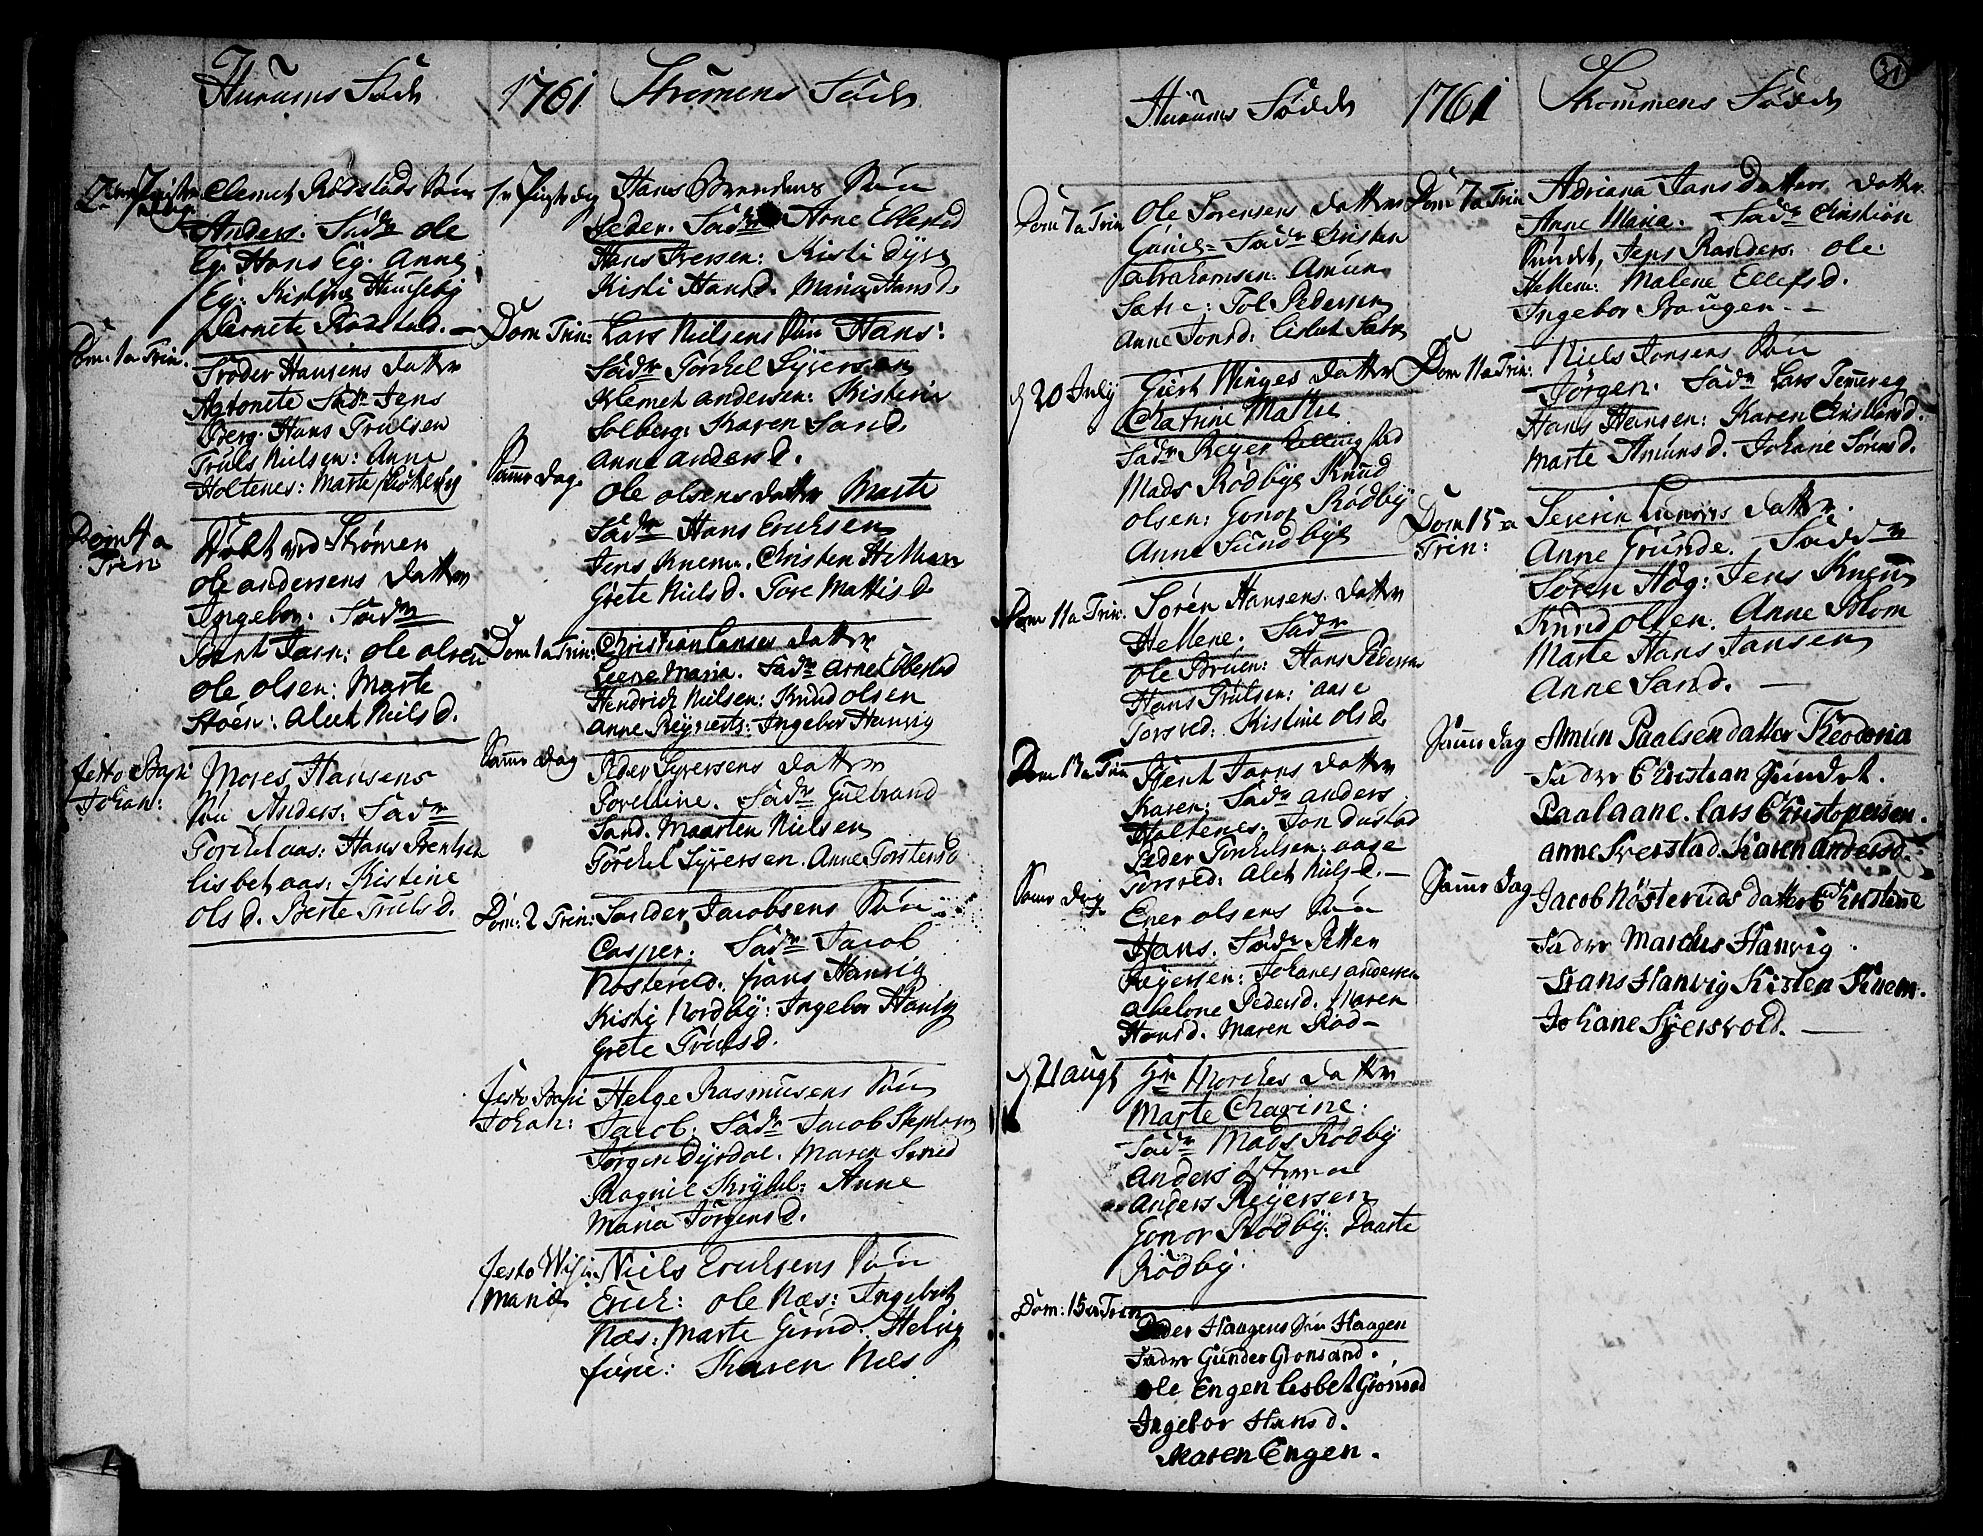 Hurums Föde
1761
Strömens Föde
Clemet Rödstads Sön
Anders. Fadr Ole
Eg. Hans Eg. Anne
Eg.
Rödstad.
Dom: 1 a Trin.
Hansens datter
Antonete Fadr Jens
Berg. Hans Trulsen
Truls Nielsen: Anne
Holtenes: Marte
Dom 4 a
Trin
Döbt ved Strömen
Ole andersens datter
Ingebor. Fadr
Bent Jarn: ole olsen
ole olsen: Marte
Stöen: alet Niels d.
festo Bapt
Johan:
Mores Hansens
Sön Anders: Fadr
Torckel aas: Hans Brentsen
lisbet aas: Kistene
ols d. Berte Truls d.
Hans Sön
Peder. Fadr Arne Ellestad
Hans Iversen: Kisti
Kisti Hansd. Maria Hans d.
Dom Trin:
Lars Nielsens Sön Hans:
Fadr Torckel Syversen
Klemet andersen: Kistina
Solberg: Karen Sand.
Anne anders d.
Samme Dag.
Ole olsens datter Marte
Fadr Hans Ericksen
Jens Knem. Christen Hellum
Grete Niels d. Tore Mattis d.
Dom 1 a Trin:
Christian datter
Leene Maria. Fadr Arne Ellestad
Hendrick Nielsen: Knud olsen
Anne Reijerts: Ingebor Hanvig
Samme Dag
Peder Syversens datter
Porelline. Fadr Gulbrand
Sand. Maarten Nielsen
Törckel Syversen. Anne Torstensd
Dom: 2 Trin:
Jacobsens Sön
Casper. Fadr Jacob
Nöstervd: frans Hanvig
Kisti Nordby: Ingebor Hanvig
Grete Truls d.
festo Bapt
Johan:
Helge Rasmusens Sön
Jacob. Fadr Jacob
Jörgen Dyrdal. Maren
Anne
Maria Jörgens d.
festo
Mariæ
Niels Ericksens Sön
Erick: ole Næs: Ingebret
Næs: Marte. Helvig
Karen Næs
31
Hurums Födde
1761
Strömmens Födde
Dom 7 a Trin
Ole Sorensens datter
Fadr Cristen
abrahamsen: Amun
Sætre: Tol Pedersen
Anne Jonsd: Lisbet Sætre
d 20 July
Giert Winges datter
Chatrine Malhie
Fadr Reyer Ellingstad
Mads Rödbye Knud
olsen: Gonor Rödby
Anne Sundbye
Dom 11 a Trin.
Sören Hansens. datter
Hellene. Fadr
ole Bruen: Hans Pedersen
Hans Trulsen: aase
Torsved: Kistine ols d
Dom 13 a Trin
Bent Jarns datter
Karen: Fadr anders
Holtenes. Jon
Peder Torckelsen: aase
Torsved: Alet Niels d.
Samme Dag
Ener olsens Sön
Hans. Fadr Petter
Reyersen: Johanes andersen
abelone Peders d. Maren
Hansd. Maren Röd
d 21 augt
Hr Morckes datter
Marte Chatrine:
Fadr Mads Rödby
Anders
anders Reyersen
Gonor Rödby: Daarte
Rödby.
Dom: 15 a Trin
Peder Haagens Sön Haagen
Fadre Gunder Gronsand.
Ole Engen lisbet Gronsand
Ingebor Hans d.
Maren Engen.
Dom 7 a Trin
Adriana Jans Datters datter
Anne Maria. Fadr Cristian
Sundet, Jens Randers: ole
Hellem: Malene Ellefs d.
Ingebor Bougen.
Dom 11 a Trin:
Niels Jonsens Sön
Jörgen. Fadr Lars
Hans Hansen: Karen Cristians d.
Marte Amuns d. Johane Sörens d.
Dom 15 a
Trin:
Severin datter.
Anne Grunde. Fadr
Sören Hög: Jens Knem
Knud olsen. Anne Holm
Marte Hans Jansen
Anne Sand.
Samme Dag
Amun Paalsen datter Theodoria
Fadre Christian Sundet.
Paal aane. lars Christopersen.
anne Sverstad. Karen andersd.
Samme Dag
Jacob Nösteruds datter Christine
Fadre Marcus Hanvig.
Frans Hanvig Kisten Knem.
Johane Syversvold.